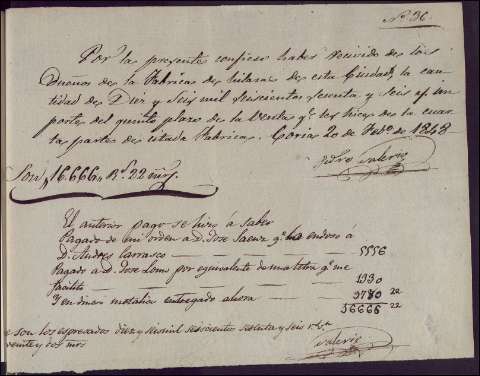 Nº 36.
Por la presente confieso haber recivido de los
Dueños de la Fabrica de hilazas de esta Ciudad, la can-
tidad de Diez y Seis mil Seiscientos Sesenta y Seis
porte del quinto plazo de la Venta qe. les hice de la cuar-
ta parte de citada Fabrica. Coria 20 de Febº de 1848
Pedro Valerio
Son, 16.666,, Rs. 22 mrs.
El anterior pago se hizo á saber
Pagado de mi orden a D. Jose Saenz qe. endoso á
D. Andres Carrasco 5556
Pagado a D. Jose por equivalente de una letra qe. me
facilitó 1330
Y en dinero metalico entregado ahora 9780 22
16666 22
son los espresados diez y seis mil seiscientos sesenta y seis rs. vn.
veinte y dos mrs
Valerio